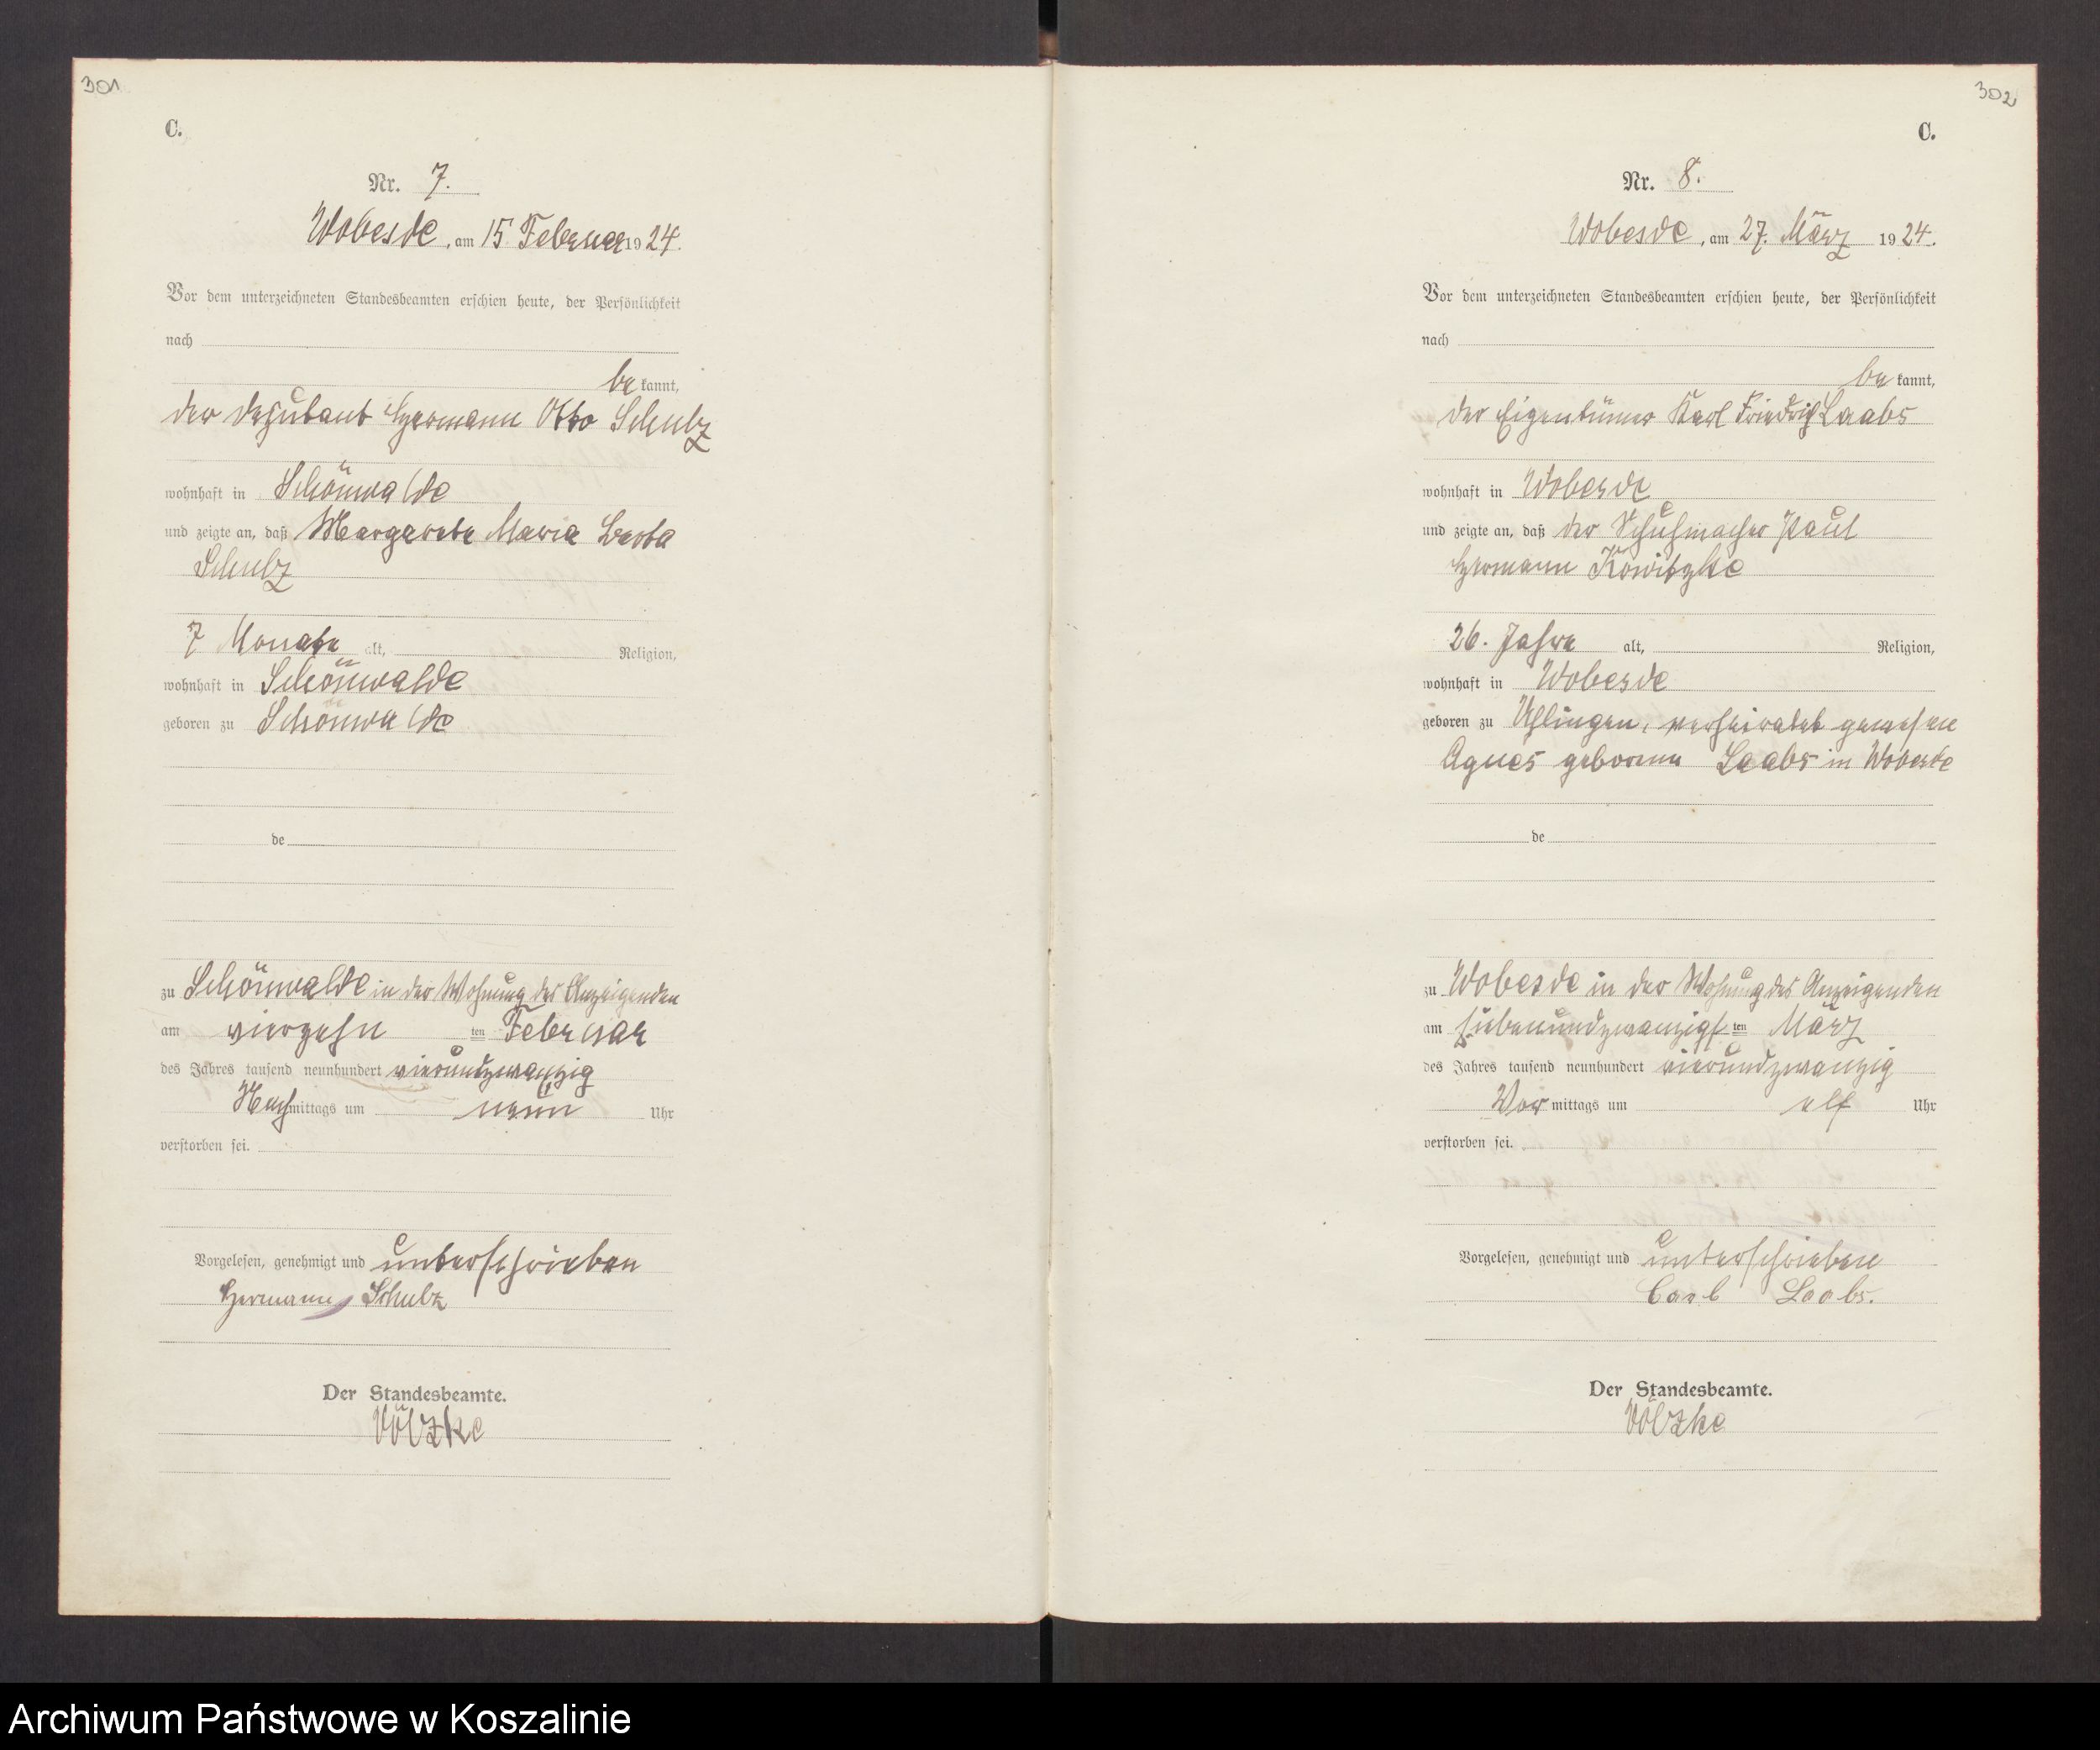 301
C.
Nr. 7.
Wobesde, am 15. Februar 1924.
Vor dem unterzeichneten Standesbeamten erschien heute, der Persönlichkeit
nach
be kannt,
der Deputant Hermann Otto Schulz
wohnhaft in Schönwalde
und zeigte an, daß Margarete Maria Berta
Schulz
7 Monate alt, Religion,
wohnhaft in Schönwalde
geboren zu Schönwalde
de
zu Schönwalde in der Wohnung des Anzeigenden
am vierzehn ten Februar
des Jahres tausend neunhundert vierundzwanzig
Nachmittags um neun Uhr
verstorben sei.
Vorgelesen, genehmigt und unterschrieben
Hermann Schulz
Der Standesbeamte.
Völzke
302
C.
Nr. 8.
Wobesde, am 27. März 1924.
Vor dem unterzeichneten Standesbeamten erschien heute, der Persönlichkeit
nach
be kannt,
der Eigentümer Karl Friedrich Laabs
wohnhaft in Wobesde
und zeigte an, daß der Schuhmacher Paul
Hermann Kowitzke
26. Jahre alt, Religion,
wohnhaft in Wobesde
geboren zu Uhlingen, verheiratet gewesen
Agnes geborene Laabs in Wobesde
de
zu Wobesde in der Wohnung des Anzeigenden
am siebenundzwanzigs ten März
des Jahres tausend neunhundert vierundzwanzig
Vormittags um elf Uhr
verstorben sei.
Vorgelesen, genehmigt und unterschrieben
Carl Laabs.
Der Standesbeamte.
Völzke
Archiwum Państwowe w Koszalinie